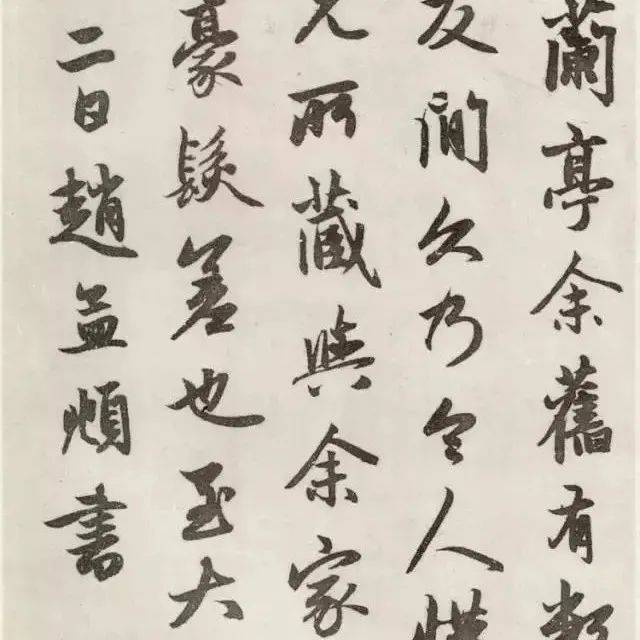 蘭亭余舊有數
友間久乃令人
兄所藏與余家
豪髮差也至大
二日趙孟頫書